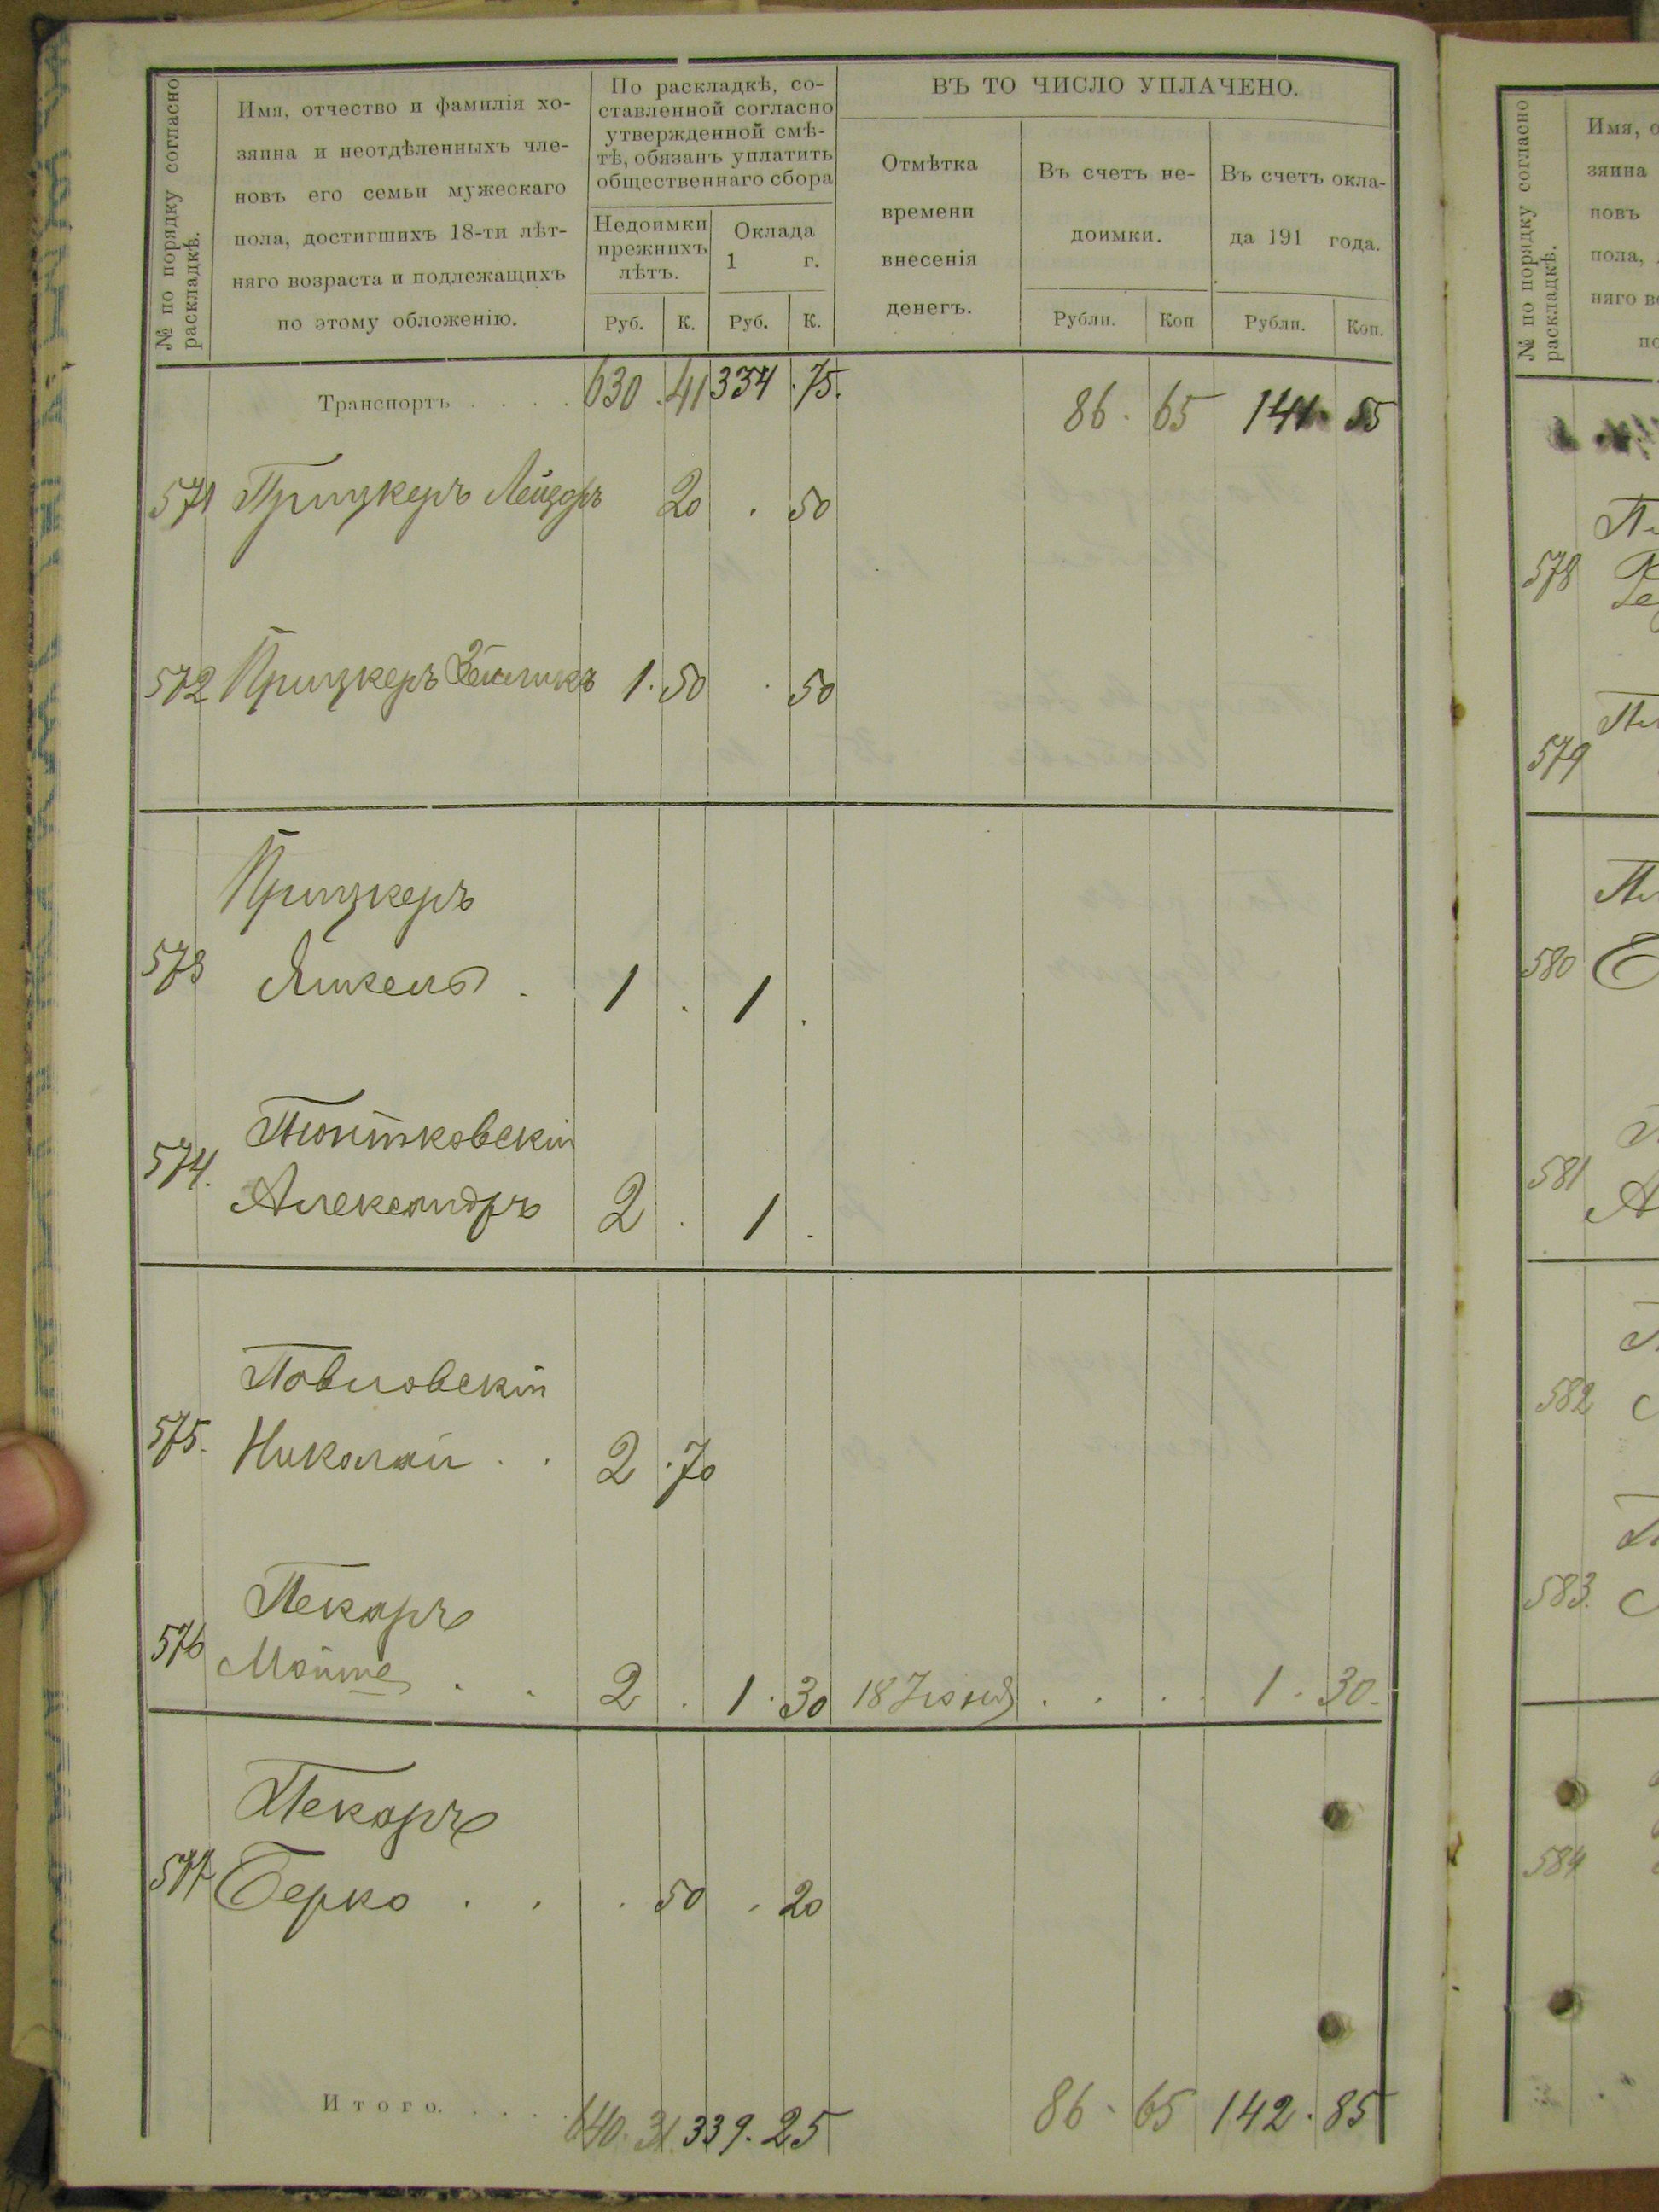 № по порядку согласно
раскладкѣ.
Имя, отчество и фамилія хо-
зяина и неотдѣленныхъ чле-
новъ его семьи мужескаго
пола, достигшихъ 18-ти лѣт-
няго возраста и подлежащихъ
по этому обложенію.
По раскладкѣ, со-
ставленной согласно
утвержденной смѣ-
тѣ, обязанъ уплатить
общественнаго сбора
Недоимки
прежнихъ
лѣтъ.
Оклада
1 г.
Руб. К. Руб. К.
ВЪ ТО ЧИСЛО УПЛАЧЕНО.
Отмѣтка
времени
внесенія
денегъ.
Въ счетъ не-
доимки.
Рубли. Коп
Въ счетъ окла-
да 191 года.
Рубли. Коп.
Транспортъ . . . . 630 . 41 334 . 75. 86 . 65 141 . 55
571 Прицкеръ Лейзоръ 20 . 50
572 Прицкеръ Зейликъ 1 . 50 . 50
Прицкеръ
573 Янкель . 1 . 1 .
Піонтковскій
574. Александръ 2 . 1 .
Повловскій
575. Николай . . 2 . 70
Пекарь
576 Мойше . . 2 . 1 . 30 18 Іюня . . . . 1 . 30.
Пекарь
577 Берко . . . 50 . 20
Итого. . . . . 640 . 31. 339 . 25 86 . 65 142 . 85
№ по порядку согласно
раскладкѣ.
зяина
новъ
пола,
578
579
580
581
582
583.
584